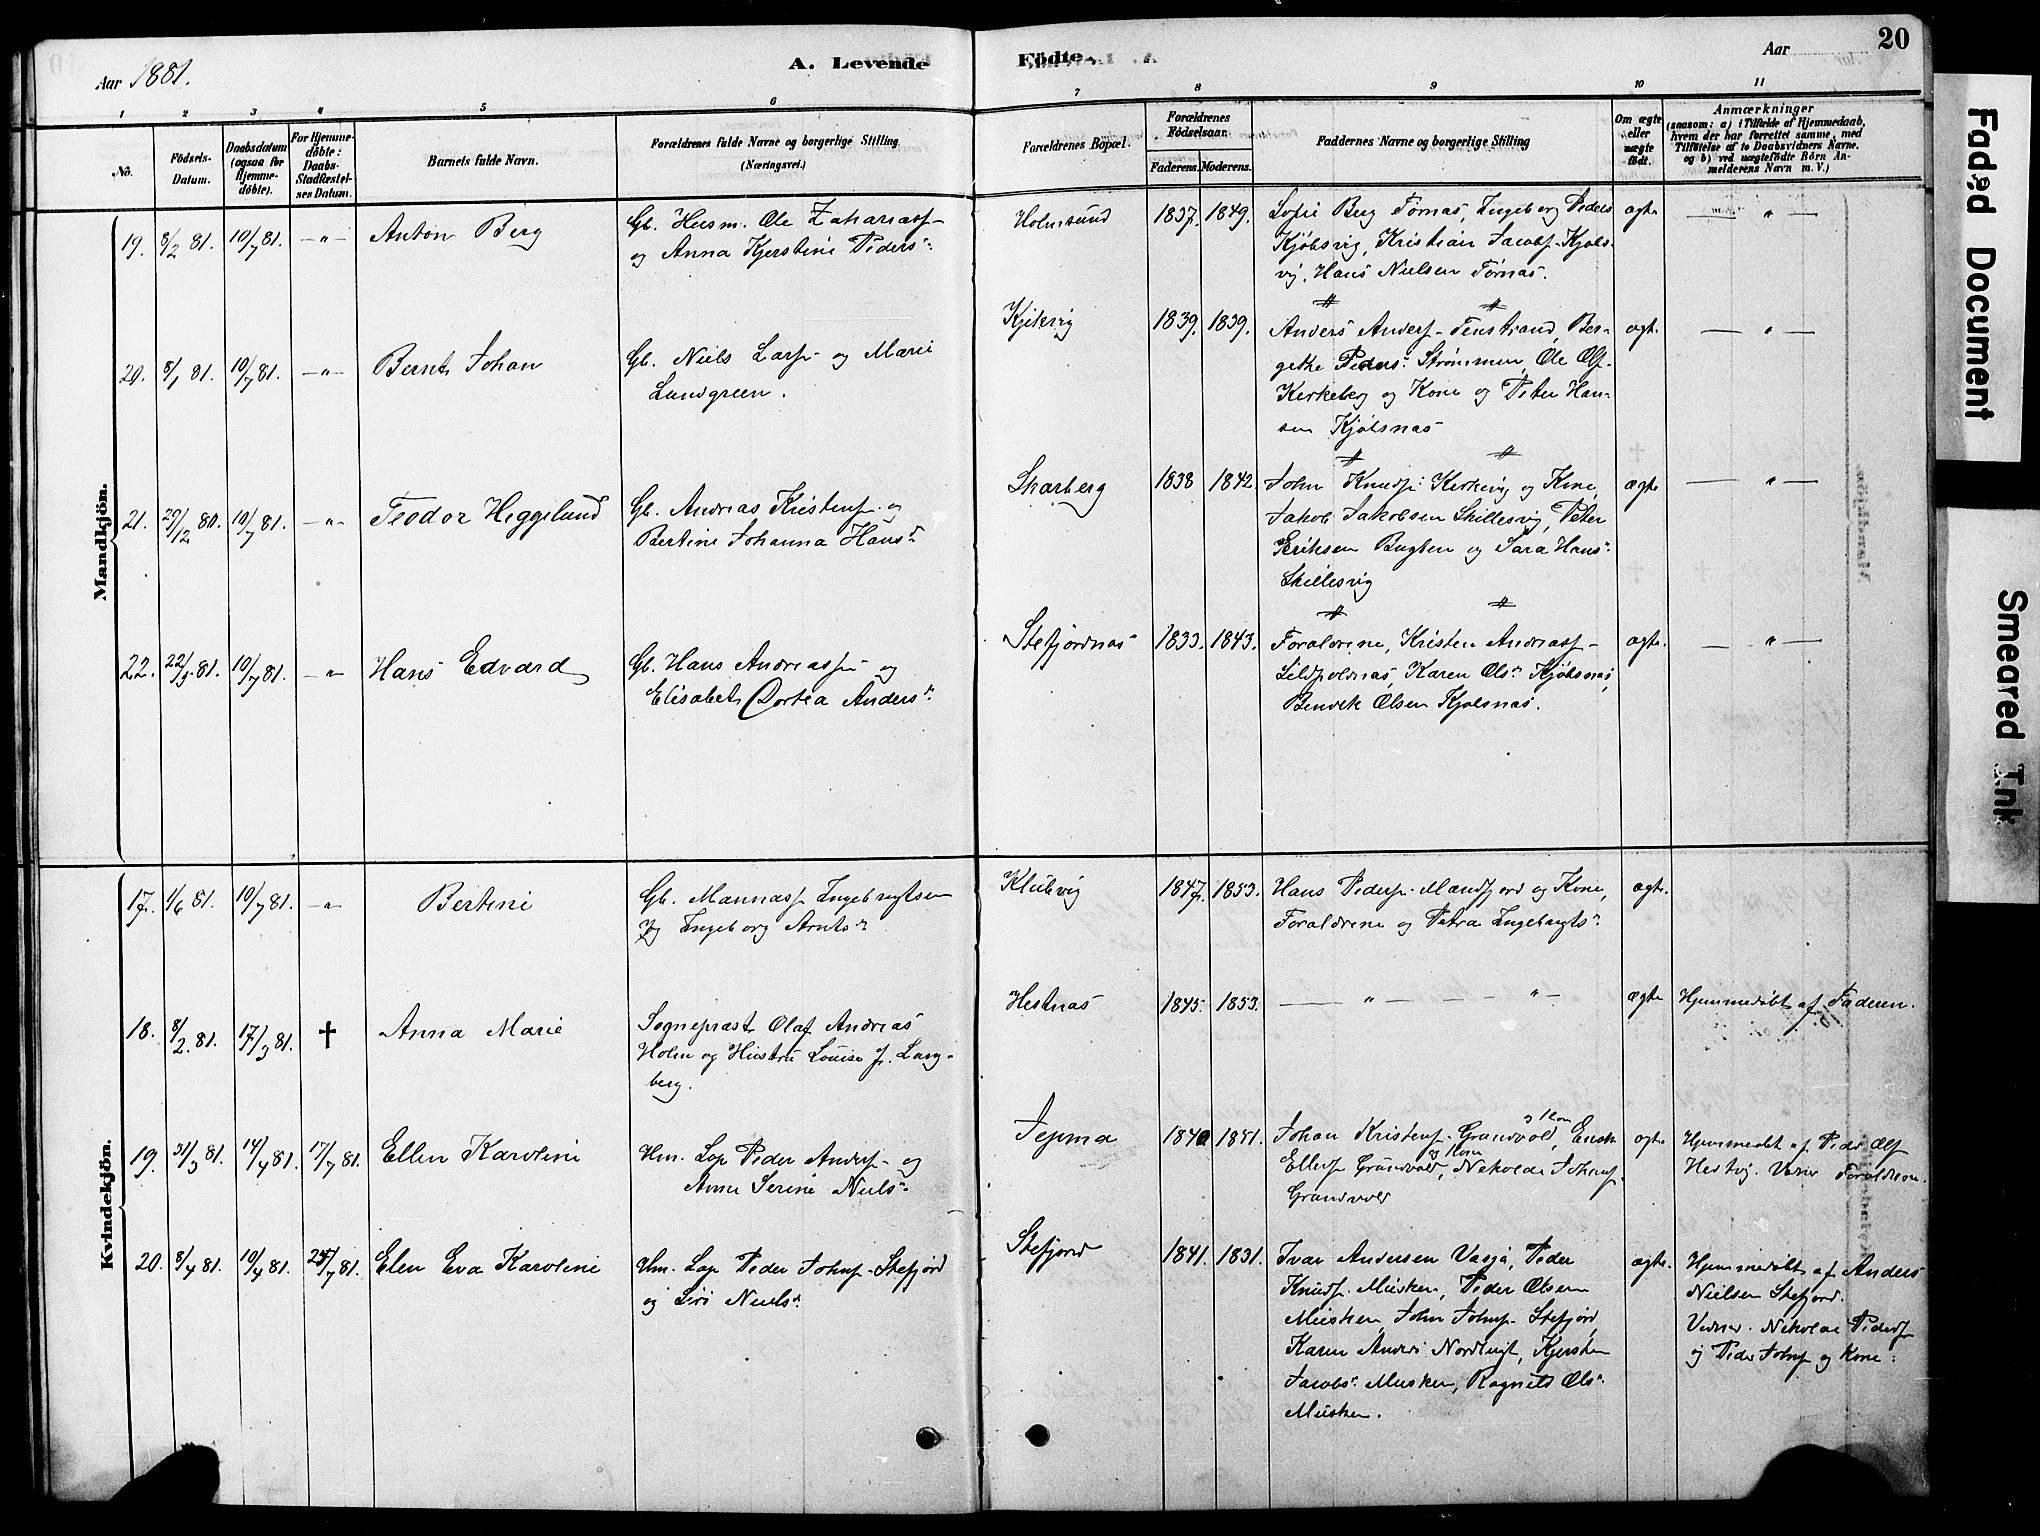 Aar 1881.
A. Levende
Födte.
Aar
20
1 2 3 4 5 6 7 8 9 10 11
No.
Födsels-
Datum.
Daabsdatum
(ogsaa for
Hjemme-
döbte).
For Hjemme-
döbte:
Daabs-
Stadfæstel-
ses Datum.
Barnets fulde Navn.
Forældrenes fulde Navne og borgerlige Stilling
(Næringsvei.)
Forældrenes Bopæl.
Forældrenes
Födselsaar.
Faderens. Moderens.
Faddernes Navne og borgerlige Stilling
Om ægte
eller
uægte
födt.
Anmærkninger
(saasom: a) i Tilfælde af Hjemmedaab,
hvem der har forrettet samme, med
Tilföielse af to Daabsvidners Navne.
og b) ved uægtefödte Börn An-
melderens Navn m. V.)
Mandkjön.
19. 8/2 81. 10/7 81. —"— Anton Berg
Gb. Husm. Ole Zakariass-
og Anna Kjerstine Peders.
Holmsund 1837. 1849.
Sofie Berg Tørnæs, Ingeborg Peders
Kjøbsvig, Kristian Jacobs. Kjøbs-
vig, Hans Nielsen Tørnæs.
ægte — " —
20. 8/1 81. 10/7 81. —"— Bernt Johan
Gb. Niels Lars- og Marie
Lundgreen.
Kjikvig 1839. 1839.
Anders Anders- Finstrand, Ber-
gethe Peders. Strømmen, Ole Ols.
Kirkeberg og Kone og Peter Han-
sen Kjøbsnæs
ægte. — " —
21. 29/12 80. 10/7 81. —"— Teodor Heggelund
Gb. Andreas Kristens. og
Bertine Johanna Hans.
Skarberg 1838 1842.
John Knuds. Kirkvig og Kone,
Jakob Jakobsen Skillesvig, Peter
Eriksen Bugten og Sara Hans.
Skillesvig
ægte — " —
22. 22/5 81. 10/7 81. —"— Hans Edvard
Gb. Hans Andreass- og
Elisabet Dortea Anders.
Stefjordnæs 1833. 1843.
Forældrene, Kristen Andreass-
Sildpolnæs, Karen Ols. Kjøbsnæs,
Bendik Olsen Kjøbsnæs.
ægte. — " —
Kvindekjön.
17. 1/6 81. 10/7 81. —"— Bertine
Gb. Mannass Ingebrigtsen
og Ingeborg Arnts.
Klubvig 1847. 1853.
Hans Peders. Mandfjord og Kone,
Forældrene og Petra Ingebrigts.
ægte.
18. 8/2 81. 17/3 81. † Anna Marie
Sogneprest Olaf Andreas
Holm og Hustru Louise f. Lang-
berg.
Hestnæs 1845. 1853.
— " — — " —
ægte Hjemmedøbt af Faderen.
19. 31/3 81. 14/4 81. 17/7 81. Ellen Karoline
Hm. Lap Peder Anders- og
Anne Serine Niels.
1840 1851.
og Kone
Johan Kristens. Grundvold, Enok
og Kone
Ellefs. Grundvold, Nikolai Johns.
Grundvold
ægte Hjemmedøbt af Peder Ols
Vidner Forældrene.
20. 8/4 81. 10/4 81. 25/7 81. Elen Eva Karoline
Hm. Lap Peder Johns- Stefjord
og Siri Niels.
Stefjord 1841. 1831.
Ivar Andersen Vasja, Peder
Knuds. Musken, Peder Olsen
Musken, John Johns- Stefjord,
Karen Anders Nordbugt, Kjersten
Jacobs. Musken, Ragnild Ols.
Musken.
ægte. Hjemmedøbt af Anders
Nielsen Stefjord.
Vidner. Nikolai Peders
og Peder Johns og Kone.
Faded Document
Smeared Ink